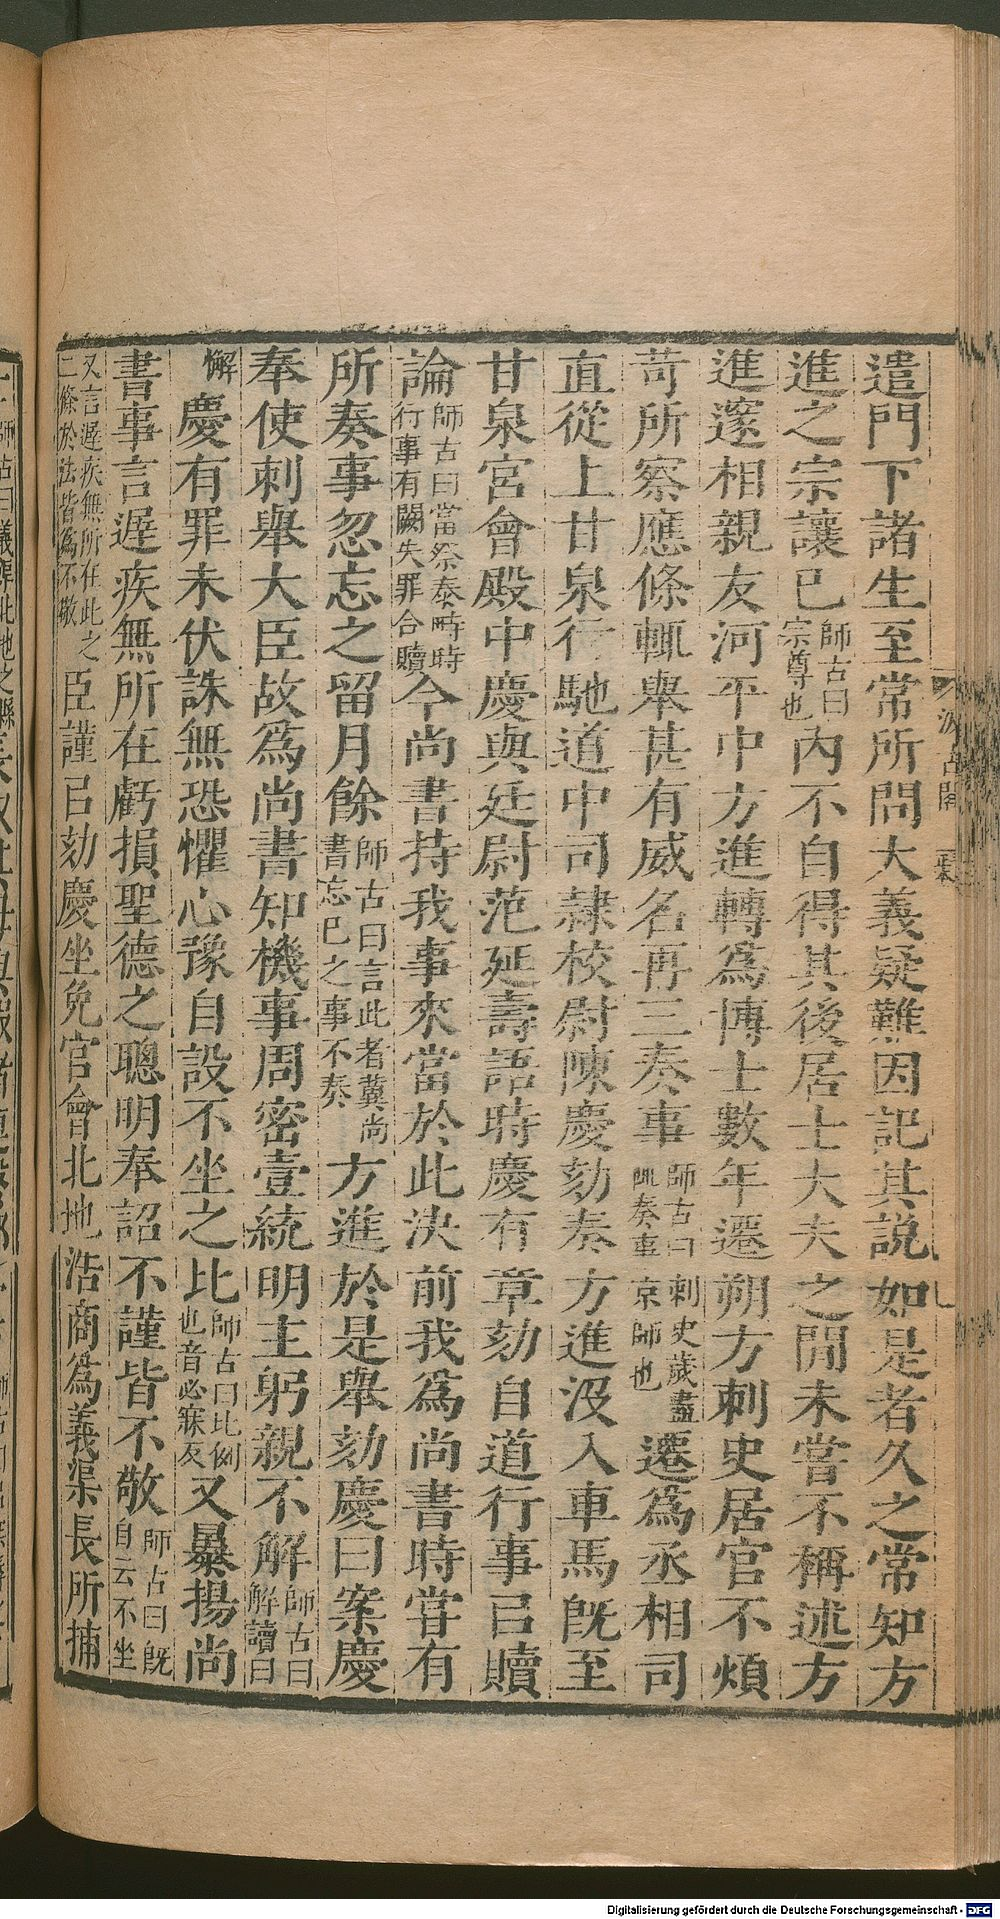 遣門下諸生至常所問大義疑難因記其說如是者久之常知方
進之宗讓已師古曰宗尊也內不自得其後居士大夫之間未嘗不稱述方
進遂相親友河平中方進轉為博士數年遷朔方刺史居官不煩
苛所察應條輒舉甚有威名再三奏事師古曰刺史歲盡輒奏事京師也遷為丞相司
直從上甘泉行馳道中司隸校尉陳慶劾奏方進沒入車馬旣至
甘泉宮會殿中慶與廷尉范延壽語時慶有章劾自道行事㠯贖
論師古曰當祭泰畤時行事有闕失罪合贖今尚書持我事來當於此決前我為尚書時嘗有
所奏事忽忘之留月餘師古曰言此者冀尚書忘己之事不奏方進於是舉劾慶曰案慶
奉使刺舉大臣故為尚書知機事周密壹統明主躬親不解師古曰解讀曰
懈慶有罪未伏誅無恐懼心豫自設不坐之比師古曰比例也音必寐反又暴揚尚
書事言遲疾無所在虧損聖德之聰明奉詔不謹皆不敬師古曰旣自云不坐
又言遲疾無所在此之二條於法皆為不敬臣謹㠯劾慶坐免官會北地浩商為義渠長所捕
汲古閣
Digitalisierung gefördert durch die Deutsche Forschungsgemeinschaft - DFG